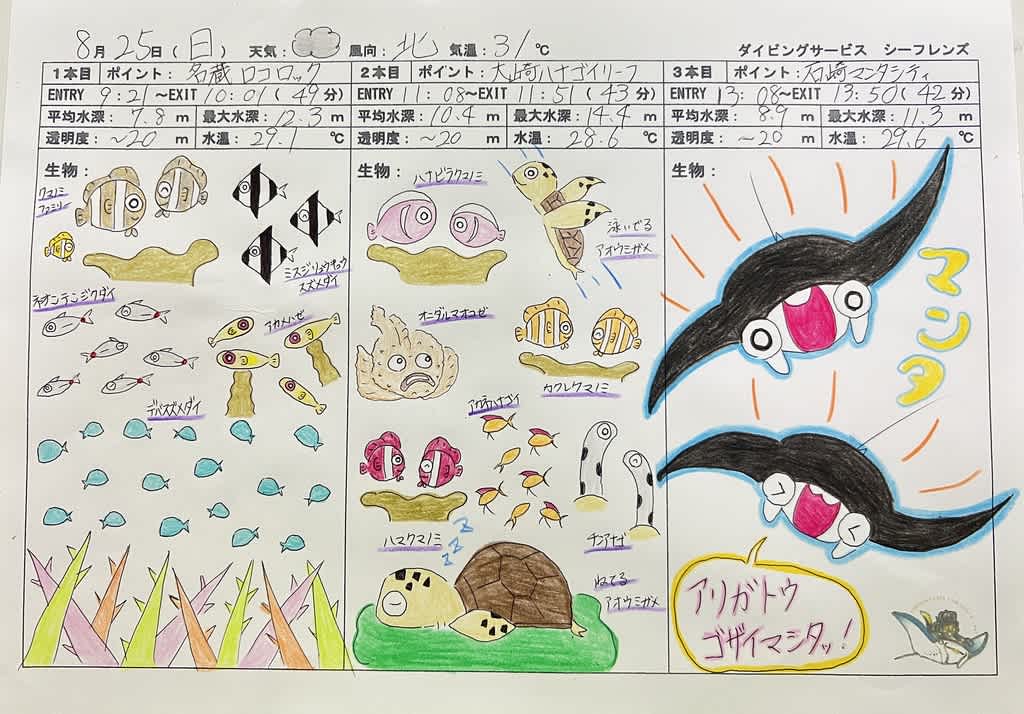 8月25日(日) 天気: 風向:北 気温:31℃
ダイビングサービス シーフレンズ
1本目 ポイント:名蔵ロコロック
ENTRY 9:21~EXIT 10:01(49分)
平均水深:7.8m 最大水深:12.3m
透明度:~20m 水温:29.1℃
生物:
クマノミ
ファミリー
ミスジリュウキュウ
スズメダイ
ネオンテンジクダイ
アカメハゼ
デバスズメダイ
2本目 ポイント:大崎ハナゴイリーフ
ENTRY 11:08~EXIT 11:51(43分)
平均水深:10.4m 最大水深:14.4m
透明度:~20m 水温:28.6℃
生物:
ハナビラクマノミ
泳いでる
アオウミガメ
オニダルマオコゼ
カクレクマノミ
アカネハナゴイ
ハマクマノミ
チンアナゴ
zzz
ねてる
アオウミガメ
3本目 ポイント:石崎マンタシティ
ENTRY 13:08~EXIT 13:50(42分)
平均水深:8.9m 最大水深:11.3m
透明度:~20m 水温:29.6℃
生物:
マンタ
アリガトウ
ゴザイマシタッ!